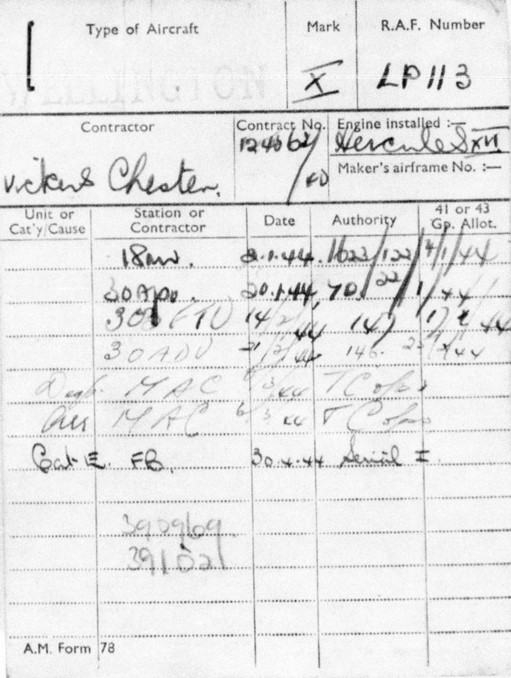 Type of Aircraft Mark R.A.F. Number
WELLINGTON
X LP113
Contractor Contract No. Engine installed :—
Vickers Chester. 124362/40 Hercules XVI
Maker's airframe No. :—
Unit or Cat'y/Cause Station or Contractor Date Authority 41 or 43 Gp. Allot.
18 MU. 2.1.44 1622/122 4/1/44
30 APU. 20.1.44 70/22/1/44
303 FTU 14/2/44 147
30 ADU 21/2/44 146.
Dep. MAC /3/44 T Cofs
Arr MAC 6/3/44 T Cofs
Cat E. FB. 30.4.44 Serial I.
390969.
391021
A.M. Form 78